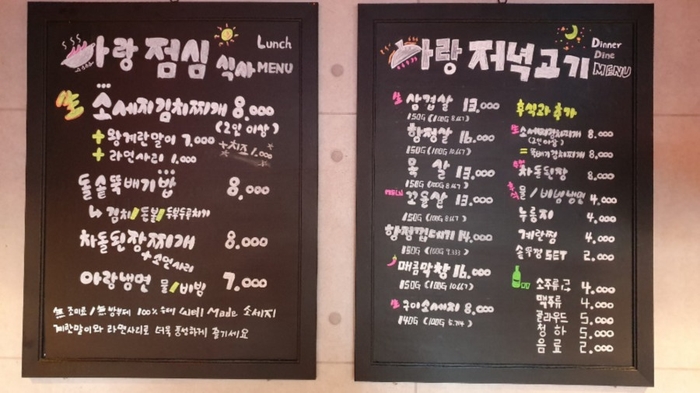 아랑 점심 식사 Lunch MENU
生 소세지김치찌개 8.000
(2인 이상)
+ 왕계란말이 7.000
+ 라면사리 1.000
+ 치즈 1.000
돌솥뚝배기밥 8.000
김치/돈불/두루두루치기
차돌된장찌개 8.000
+ 소면사리
아랑냉면 물/비빔 7.000
100% Made 소세지
계란말이와 라면사리로 더욱 풍성하게 즐기세요
아랑 저녁고기 Dinner Dine MENU
生 삼겹살 13.000
150G (100G 8.667)
항정살 16.000
150G (100G 10.667)
목 살 13.000
150G (100G 8.667)
꼬들살 13.000
150G (100G 8.667)
항정껍데기 14.000
150G (100G 9.333)
매콤막창 16.000
150G (100G 10.667)
生 구이소세지 8.000
140G (100G 5.714)
후식과 추가
生 소세지김치찌개 8.000
(2인 이상)
= 뚝배기김치찌개 8.000
차돌된장 8.000
물/비빔냉면 4.000
누룽지 4.000
계란찜 4.000
솥뚜껑 SET 2.000
소주류 4.000
맥주류 4.000
클라우드 5.000
청하 5.000
음료 2.000